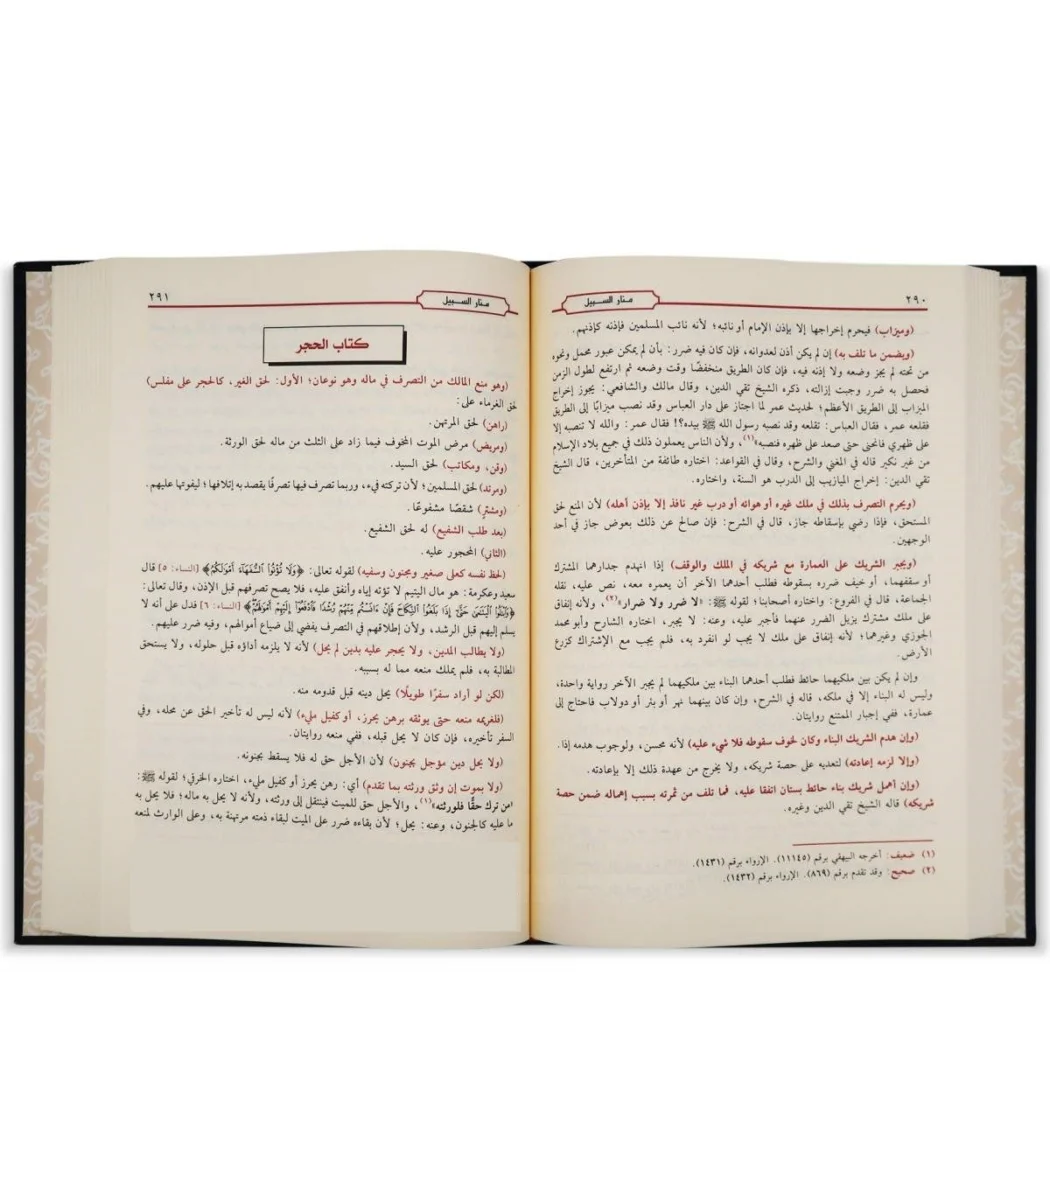 ٢٩٠
منار السبيل
(وميزاب) فيحرم إخراجها إلا بإذن الإمام أو نائبه؛ لأنه نائب المسلمين فإذنه كإذنهم.
(ويضمن ما تلف به) إن لم يكن أذن لعدوانه، فإن كان فيه ضرر: بأن لم يمكن عبور محمل ونحوه
من تحته لم يجز وضعه ولا إذنه فيه، فإن كان الطريق منخفضًا وقت وضعه ثم ارتفع لطول الزمن
فحصل به ضرر وجبت إزالته، ذكره الشيخ تقي الدين، وقال مالك والشافعي: يجوز إخراج
الميزاب إلى الطريق الأعظم؛ لحديث عمر لما اجتاز على دار العباس وقد نصب ميزابًا إلى الطريق
فقلعه عمر، فقال العباس: تقلعه وقد نصبه رسول الله ﷺ بيده؟! فقال عمر: والله لا تنصبه إلا
على ظهري فانحنى حتى صعد على ظهره فنصبه»(١)، ولأن الناس يعملون ذلك في جميع بلاد الإسلام
من غير نكير قاله في المغني والشرح، وقال في القواعد: اختاره طائفة من المتأخرين، قال الشيخ
تقي الدين: إخراج الميازيب إلى الدرب هو السنة، واختاره.
(ويحرم التصرف بذلك في ملك غيره أو هوائه أو درب غير نافذ إلا بإذن أهله) لأن المنع لحق
المستحق، فإذا رضي بإسقاطه جاز، قال في الشرح: فإن صالح عن ذلك بعوض جاز في أحد
الوجهين.
(ويجبر الشريك على العمارة مع شريكه في الملك والوقف) إذا انهدم جدارهما المشترك
أو سقفهما، أو خيف ضرره بسقوطه فطلب أحدهما الآخر أن يعمره معه، نص عليه، نقله
الجماعة، قال في الفروع: واختاره أصحابنا؛ لقوله ﷺ: «لا ضرر ولا ضرار»(٢)، ولأنه إنفاق
على ملك مشترك يزيل الضرر عنهما فأجبر عليه، وعنه: لا يجبر، اختاره الشارح وأبو محمد
الجوزي وغيرهما؛ لأنه إنفاق على ملك لا يجب لو انفرد به، فلم يجب مع الإشتراك كزرع
الأرض.
وإن لم يكن بين ملكيهما حائط فطلب أحدهما البناء بين ملكيهما لم يجبر الآخر رواية واحدة،
وليس له البناء إلا في ملكه، قاله في الشرح، وإن كان بينهما نهر أو بئر أو دولاب فاحتاج إلى
عمارة، ففي إجبار الممتنع روايتان.
(وإن هدم الشريك البناء وكان لخوف سقوطه فلا شيء عليه) لأنه محسن، ولوجوب هدمه إذا.
(وإلا لزمه إعادته) لتعديه على حصة شريكه، ولا يخرج من عهدة ذلك إلا بإعادته.
(وإن أهمل شريك بناء حائط بستان اتفقا عليه، فما تلف من ثمرته بسبب إهماله ضمن حصة
شريكه) قاله الشيخ تقي الدين وغيره.
(١) ضعيف: أخرجه البيهقي برقم (١١١٤٥). الإرواء برقم (١٤٣١).
(٢) صحيح: وقد تقدم برقم (٨٦٩). الإرواء برقم (١٤٣٢).
منار السبيل
٢٩١
كتاب الحجر
(وهو منع المالك من التصرف في ماله وهو نوعان؛ الأول: لحق الغير، كالحجر على مفلس)
لحق الغرماء على:
(راهن) لحق المرتهن.
(ومريض) مرض الموت المخوف فيما زاد على الثلث من ماله لحق الورثة.
(وقن، ومكاتب) لحق السيد.
(ومرتد) لحق المسلمين؛ لأن تركته فيء، وربما تصرف فيها تصرفًا يقصد به إتلافها؛ ليفوتها عليهم.
(ومشتر) شقصًا مشفوعًا.
(بعد طلب الشفيع) له لحق الشفيع.
(الثاني) المحجور عليه.
(لحظ نفسه كعلى صغير ومجنون وسفيه) لقوله تعالى: ﴿وَلَا تُؤْتُوا۟ ٱلسُّفَهَآءَ أَمْوَٰلَكُمُ﴾ [النساء: ٥] قال
سعيد وعكرمة: هو مال اليتيم لا تؤته إياه وأنفق عليه، فلا يصح تصرفهم قبل الإذن، وقال تعالى:
﴿وَٱبْتَلُوا۟ ٱلْيَتَٰمَىٰ حَتَّىٰٓ إِذَا بَلَغُوا۟ ٱلنِّكَاحَ فَإِنْ ءَانَسْتُم مِّنْهُمْ رُشْدًا فَٱدْفَعُوٓا۟ إِلَيْهِمْ أَمْوَٰلَهُمْ﴾ [النساء: ٦] فدل على أنه لا
يسلم إليهم قبل الرشد، ولأن إطلاقهم في التصرف يفضي إلى ضياع أموالهم، وفيه ضرر عليهم.
(ولا يطالب المدين، ولا يحجر عليه بدين لم يحل) لأنه لا يلزمه أداؤه قبل حلوله، ولا يستحق
المطالبة به، فلم يملك منعه مما له بسببه.
(لكن لو أراد سفرًا طويلًا) يحل دينه قبل قدومه منه.
(فلغريمه منعه حتى يوثقه برهن يحرز، أو كفيل مليء) لأنه ليس له تأخير الحق عن محله، وفي
السفر تأخيره، فإن كان لا يحل قبله، ففي منعه روايتان.
(ولا يحل دين مؤجل بجنون) لأن الأجل حق له فلا يسقط بجنونه.
(ولا بموت إن وثق ورثته بما تقدم) أي: رهن يحرز أو كفيل مليء، اختاره الخرقي؛ لقوله ﷺ:
«من ترك حقًا فلورثته»(١)، والأجل حق للميت فينتقل إلى ورثته، ولأنه لا يحل به ماله؛ فلا يحل به
ما عليه كالجنون، وعنه: يحل؛ لأن بقاءه ضرر على الميت لبقاء ذمته مرتهنة به، وعلى الوارث لمنعه